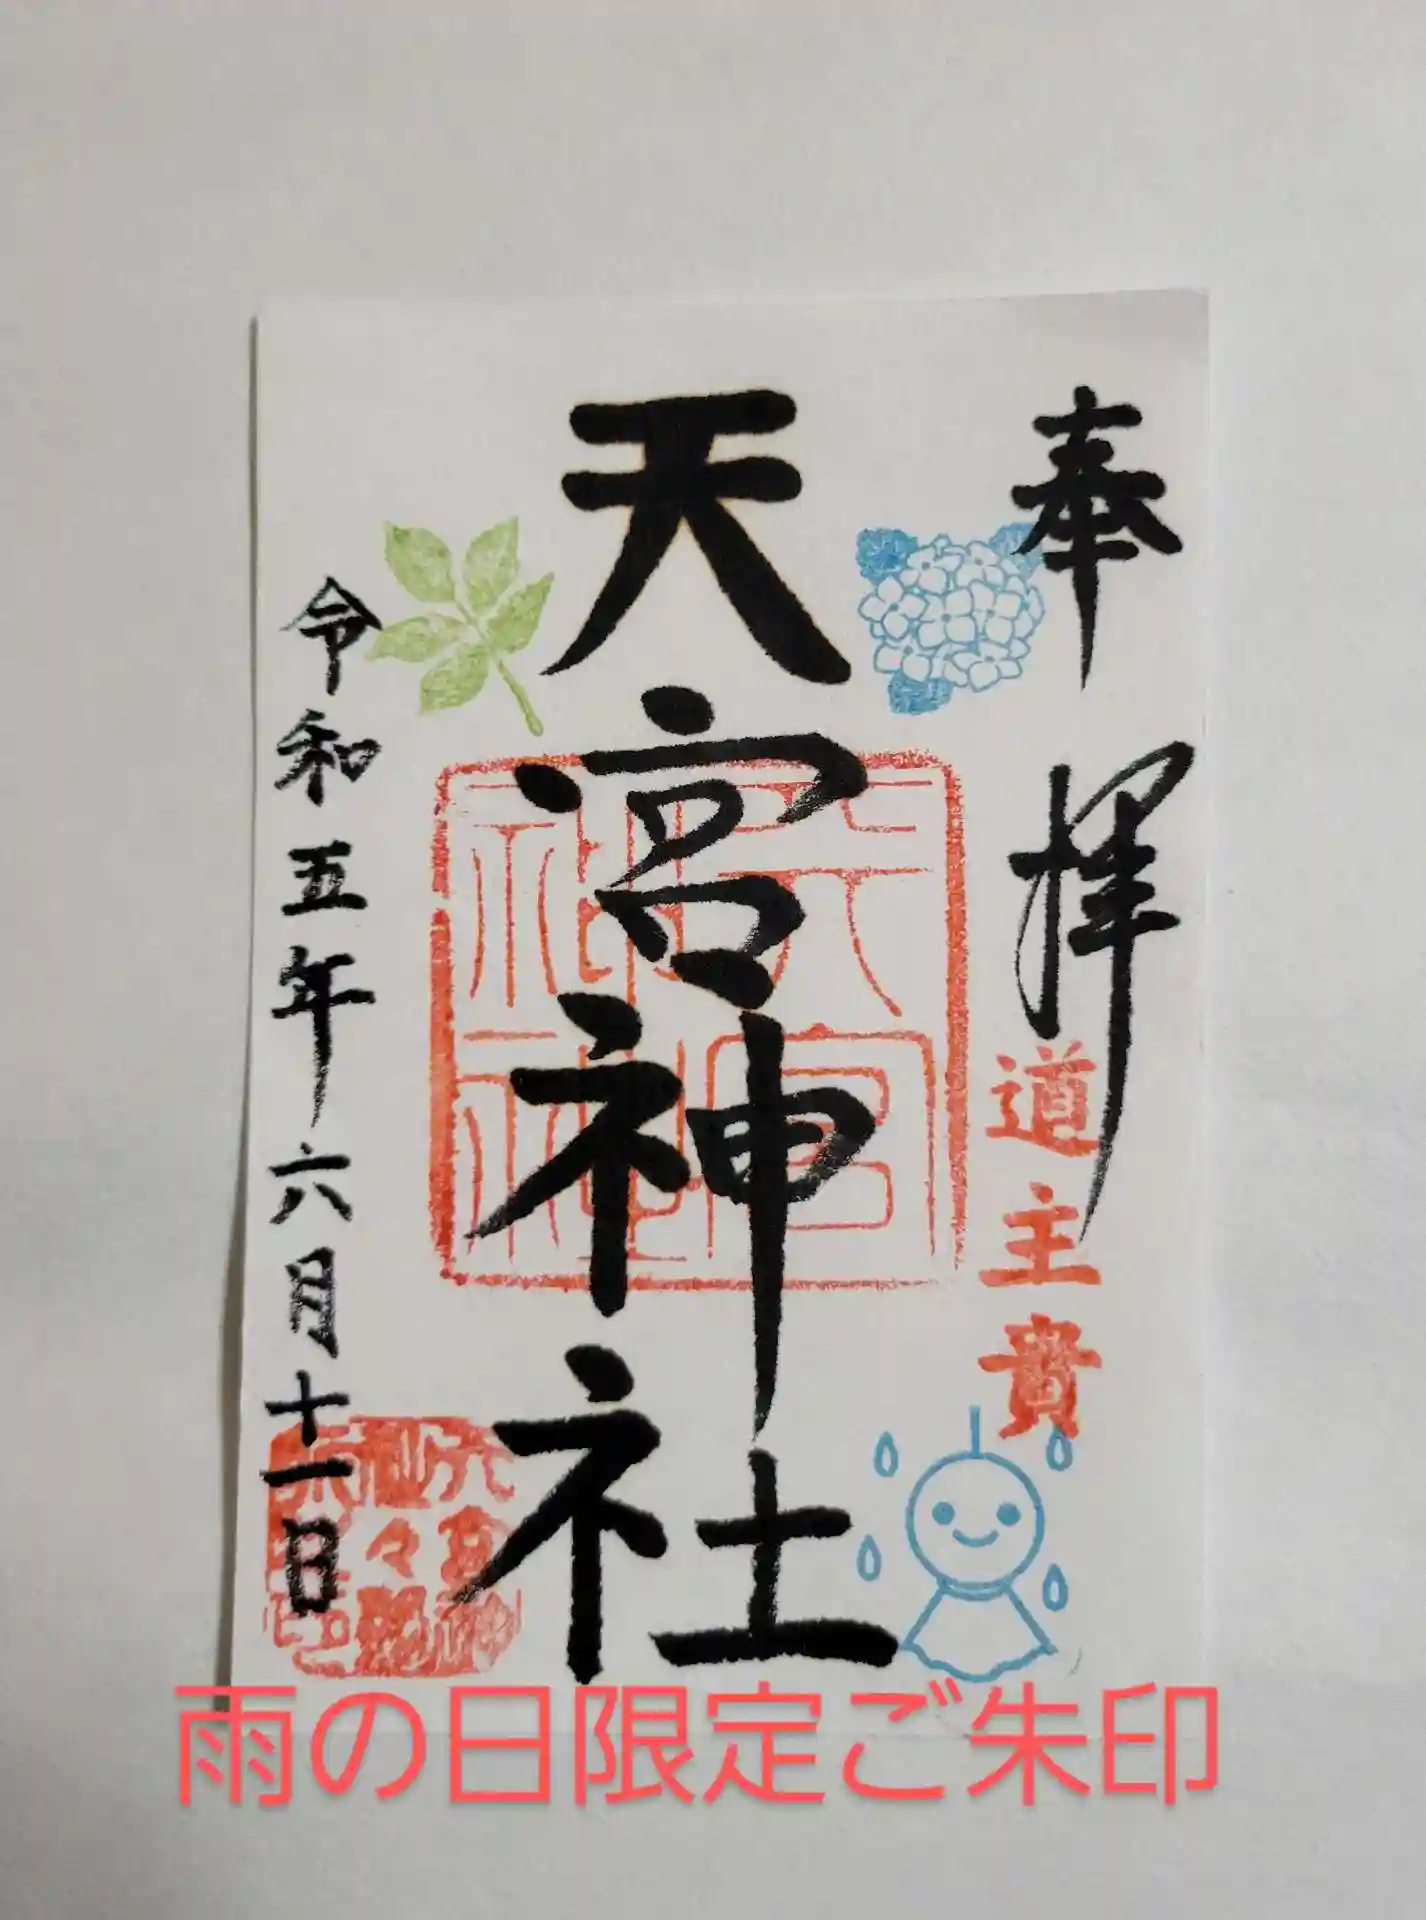 奉拝
道主貴
天宮神社
天宮神社
令和五年六月十一日
雨の日限定ご朱印